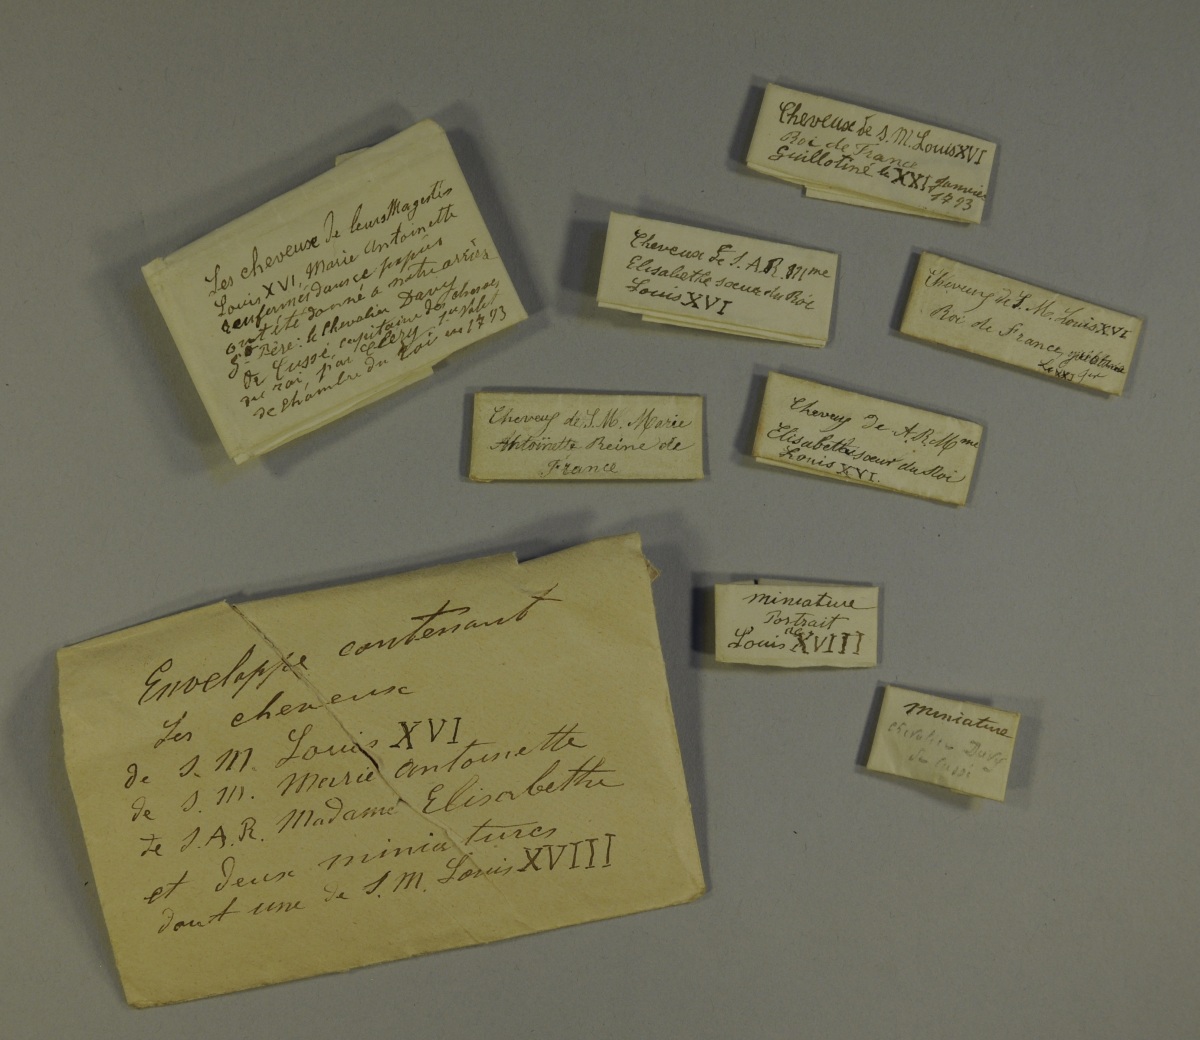 Les cheveux de leurs Magestés
Louis XVI, Marie Antoinette
renfermés dans ce papier
ont été donné à notre arrière
Gd Père: le Chevalier Davy
de Cussé, capitaine des chasses
du roi, par Cléry, 1er Valet
de chambre du Roi en 1793
Cheveux de S. M. Louis XVI
Roi de France
Guillotiné le XXI Janvier
1793
Cheveux de S. A. R. Mme
Elisabethe sœur du Roi
Louis XVI
Cheveux de S. M. Louis XVI
Roi de France, guillotiné
le XXI Jer
Cheveux de S. M. Marie
Antoinette Reine de
France
Cheveux de A. R. Mme
Elisabethe sœur du Roi
Louis XVI.
Enveloppe contenant
Les cheveux
de S. M. Louis XVI
de S. M. Marie Antoinette
de S. A. R. Madame Elisabethe
et deux miniatures
dont une de S. M. Louis XVIII
miniature
Portrait
de
Louis XVIII
miniature
chevalier Davy
de Cussé